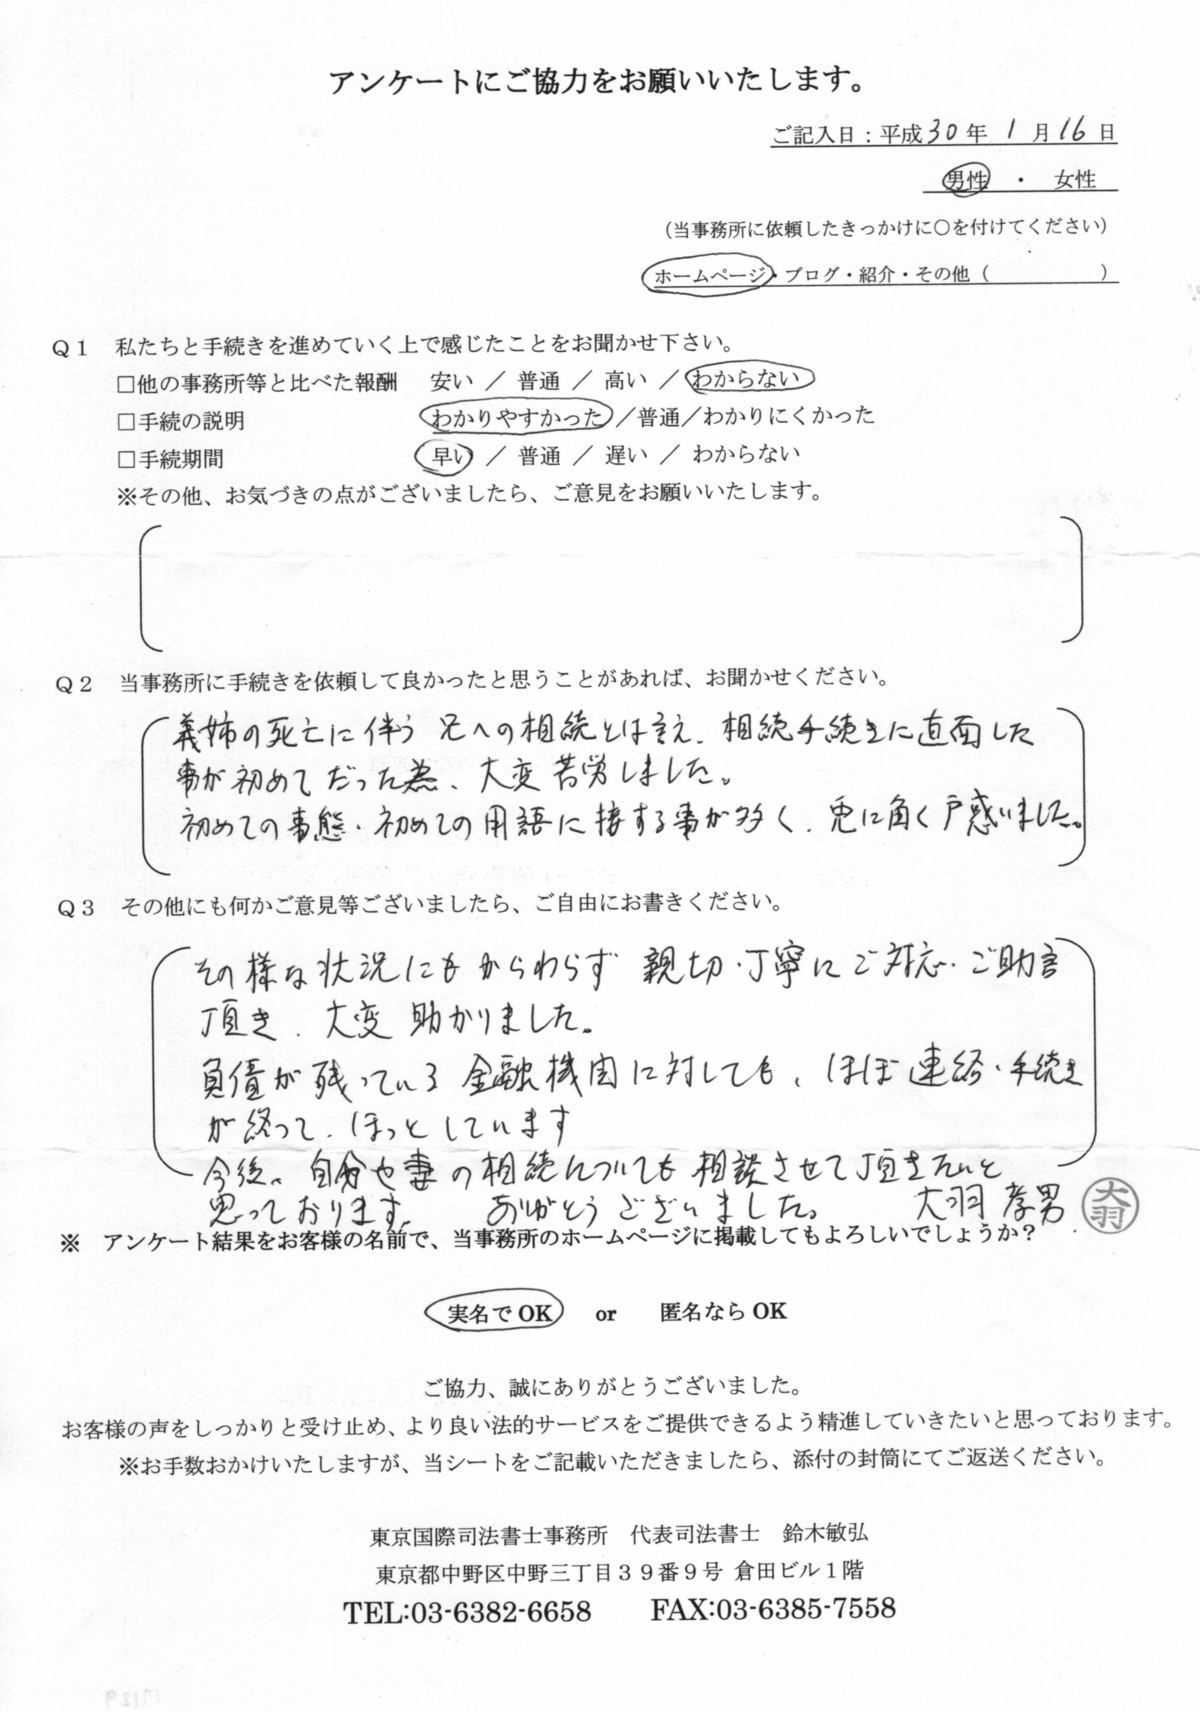 アンケートにご協力をお願いいたします。
ご記入日：平成30年 1月16日
男性 ・ 女性
（当事務所に依頼したきっかけに○を付けてください）
ホームページ・ブログ・紹介・その他（　　　　　）
Q1 私たちと手続きを進めていく上で感じたことをお聞かせ下さい。
□他の事務所等と比べた報酬 安い ／ 普通 ／ 高い ／ わからない
□手続の説明 わかりやすかった ／普通／わかりにくかった
□手続期間 早い ／ 普通 ／ 遅い ／ わからない
※その他、お気づきの点がございましたら、ご意見をお願いいたします。
Q2 当事務所に手続きを依頼して良かったと思うことがあれば、お聞かせください。
義姉の死亡に伴う 兄への相続とは言え、相続手続きに直面した
事が初めてだった為、大変苦労しました。
初めての事態・初めての用語に接する事が多く、兎に角く戸惑いました。
Q3 その他にも何かご意見等ございましたら、ご自由にお書きください。
その様な状況にもかからわらず 親切・丁寧にご対応・ご助言
頂き、大変 助かりました。
負債が残っている 金融機関に対しても、ほぼ連絡・手続き
が終って、ほっとしています
今後、自分や妻の相続についても相談させて頂きたいと
思っております。 ありがとうございました。 大羽 孝男 大羽
※ アンケート結果をお客様の名前で、当事務所のホームページに掲載してもよろしいでしょうか？
実名でOK or 匿名ならOK
ご協力、誠にありがとうございました。
お客様の声をしっかりと受け止め、より良い法的サービスをご提供できるよう精進していきたいと思っております。
※お手数おかけいたしますが、当シートをご記載いただきましたら、添付の封筒にてご返送ください。
東京国際司法書士事務所 代表司法書士 鈴木敏弘
東京都中野区中野三丁目39番9号 倉田ビル1階
TEL:03-6382-6658 FAX:03-6385-7558